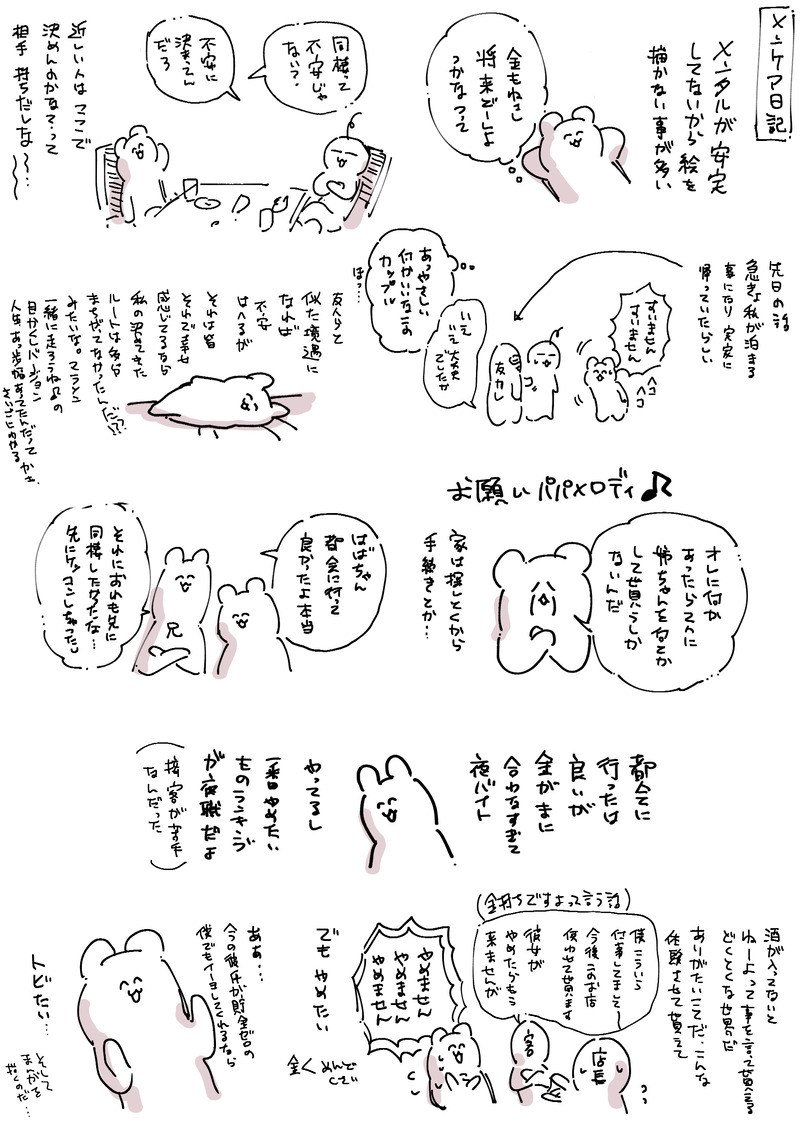 メンケア日記
メンタルが安定
してないから絵を
描かない事が多い
金もねぇし
将来どーしよ
っかなっつって
同棲って
不安じゃ
ない？
不安に
決まってん
だろ
近しい人はここで
決めんのかな？って
相手持ちだしな〜…
先日の話
急きょ私が泊まる
事になり実家に
帰っていたらしい
すいません
すいません
ヘコ
ヘコ
友カレ
いえ
いえ大丈夫
でしたか
あっやさしい
何かいいなこの
カップル
ほっ…
友人らと
似た境遇に
なれば
不安
はへるが
それは皆
それで幸せ
感じてるなら
私の決めてきた
ルートは多分
まちがってなかったんだ!?
みたいな。マラソン
一緒に走ろうねの
自分としバージョン
お願いパパメロディ♪
オレに何か
あったらてんに
姉ちゃんを何とか
して貰うしか
ないんだ
家は探しとくから
手続きとか…
ばばちゃん
都会に行って
良かったよ本当
兄
それにおれも先に
同棲したかったな…
先にケッコンしちゃったし
都会に
行ったは
良いが
金がまに
合わなすぎて
夜バイト
やってるし
一番やめたい
ものランキング
が夜職だよ
(接客が苦手
なんだった)
酒が入ってないと
ねーよって事を言って貰える
どくとくな世界だ
ありがたいことだ、こんな
体験させて貰えて
(金持ちですよって言う話)
僕こういう
仕事してまして〜
今後このお店
使わせて貰います
彼女が
やめたらもう
来ませんが
店長
客
やめません
やめません
やめません
でもやめたい
全くめんで
しだい
ああ…
今の彼氏が貯金ゼロの
僕でもイーヨしてくれるなら
トビたい…
そして
まんがを
描くのだ…